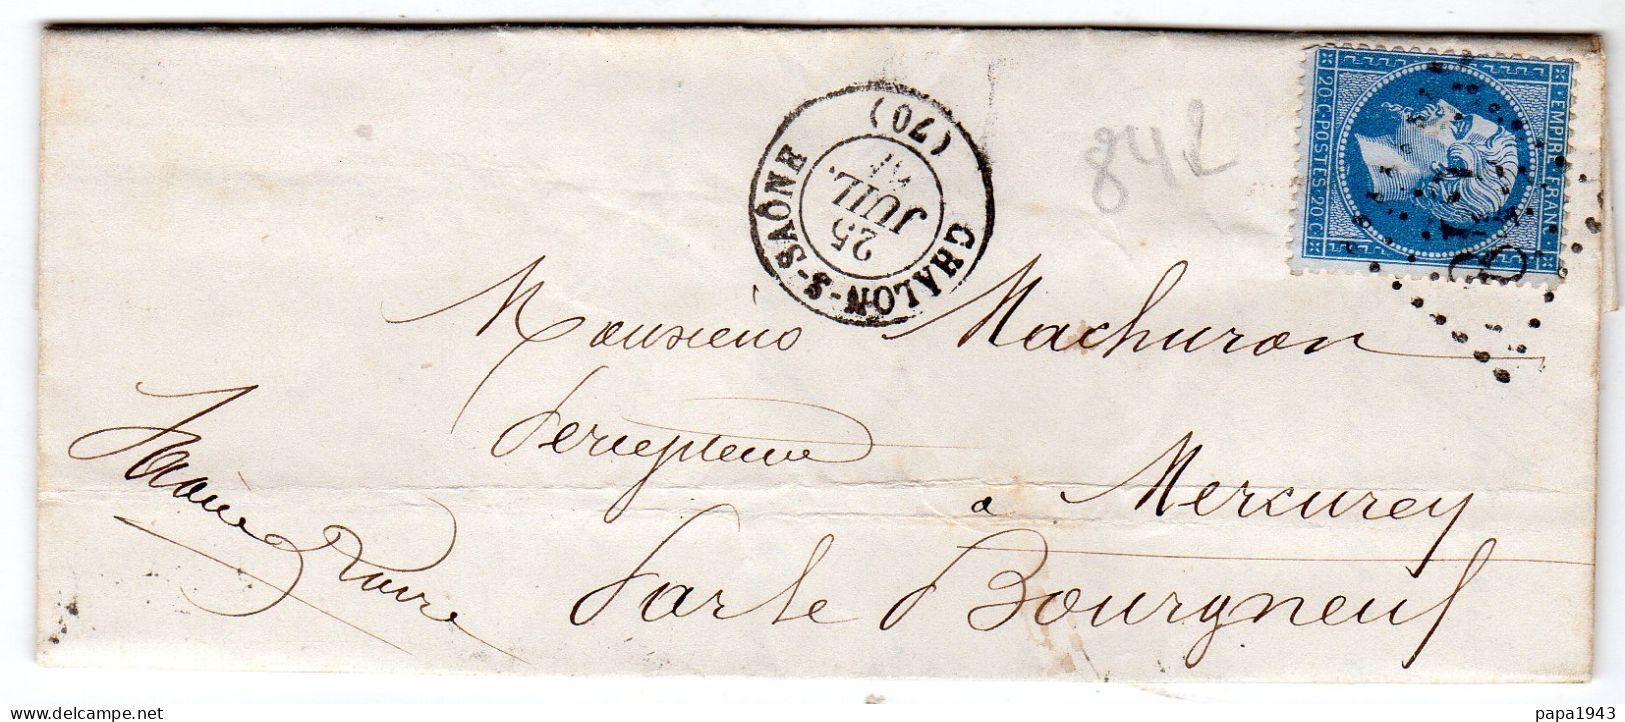 CHALON-S-SAÔNE
25
JUIL.
(70)
842
EMPIRE FRANC
20 C. POSTES. 20 C
Monsieur Machuron
à Mercurey
Par le Bourgneuf
Saône
Loire
delcampe.net
papa1943